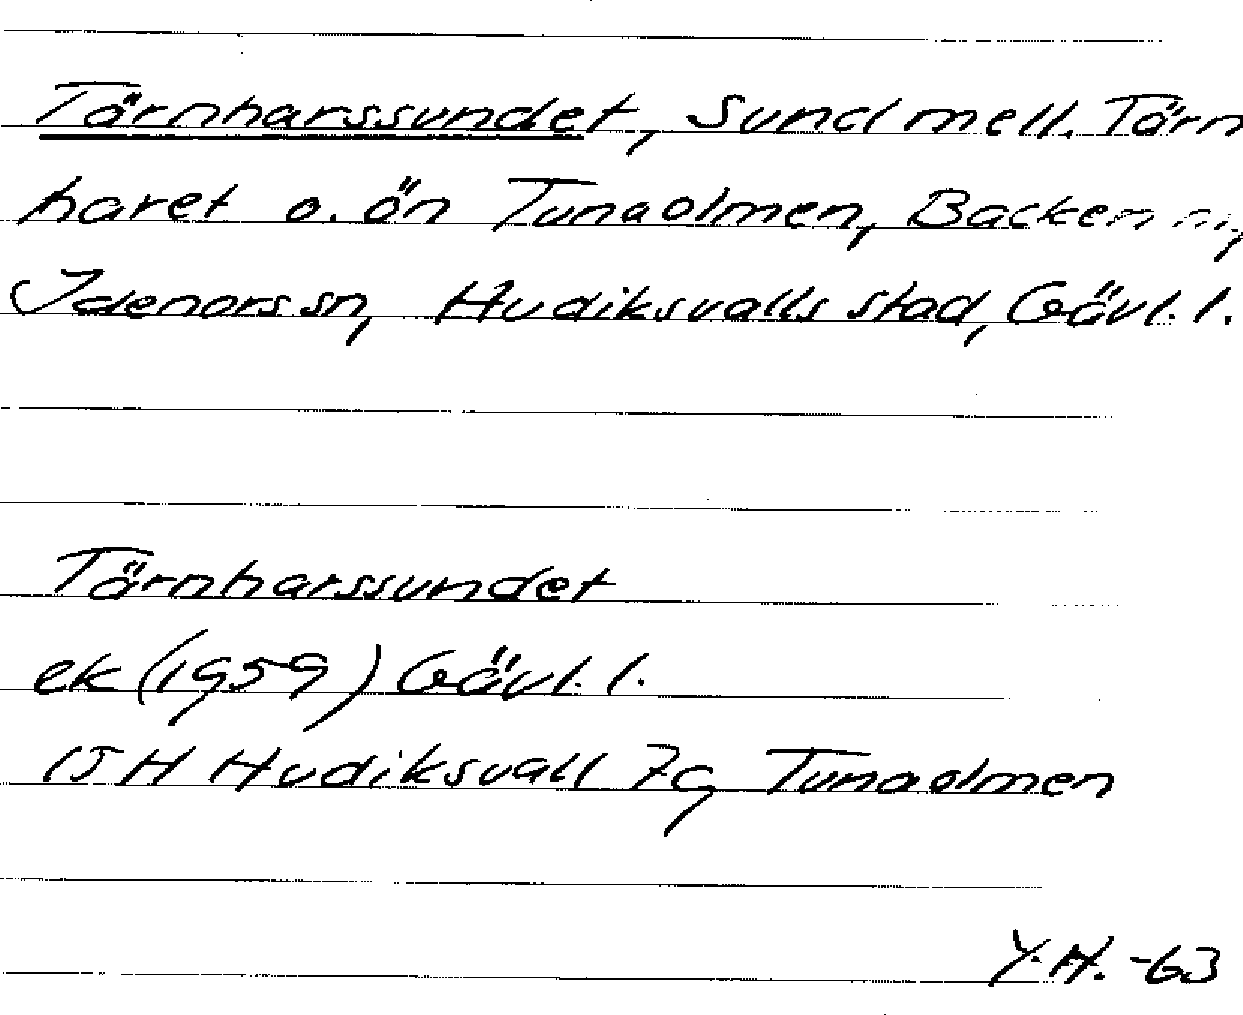 Tärnharssundet, Sund mell. Tärn
haret o. ön Tunaolmen, Backen m,
Idenors sn, Hudiksvalls stad, Gävl. l.
Tärnharssundet
ek (1959) Gävl. l.
15 H Hudiksvall 7g Tunaolmen
Y.H. -63